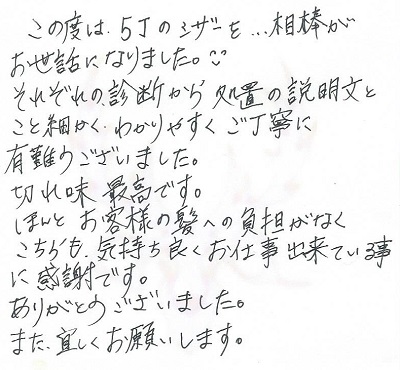 この度は、5丁のシザーを…相棒が
お世話になりました。
それぞれの診断から処置の説明文と
こと細かく、わかりやすくご丁寧に
有難うございました。
切れ味 最高です。
ほんと お客様の髪への負担がなく
こちらも、気持ち良くお仕事出来ている事
に感謝です。
ありがとのございました。
また、宜しくお願いします。